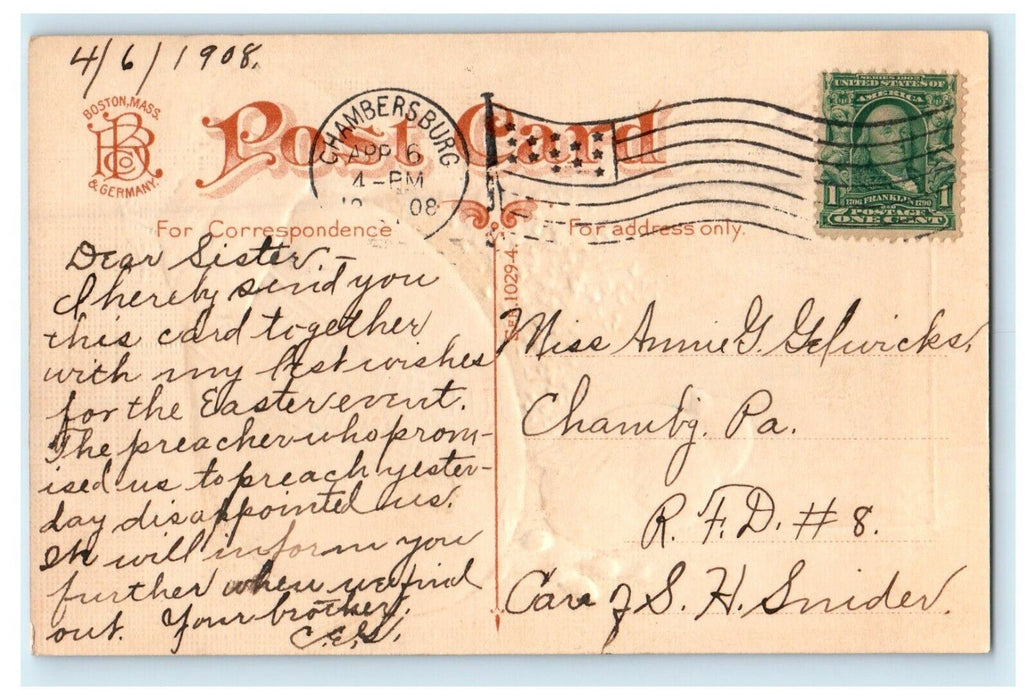 4/6/1908.
BOSTON, MASS.
B B Co
& GERMANY.
Post Card
CHAMBERSBURG
APR 6
4-PM
08
SERIES 1902
UNITED STATES OF
AMERICA
1 1706 FRANKLIN 1790 1
POSTAGE
ONE CENT
For Correspondence
For address only.
1029-4.
Dear Sister –
I hereby send you
this card together
with my best wishes
for the Easter event.
The preacher who prom-
ised us to preach yester-
day disappointed us.
will inform you
further when we find
out. Your brother,
C.E.G.
Miss Annie G. Gelwicks,
Chambg. Pa.
R. F. D. # 8.
Care of S. H. Snider.